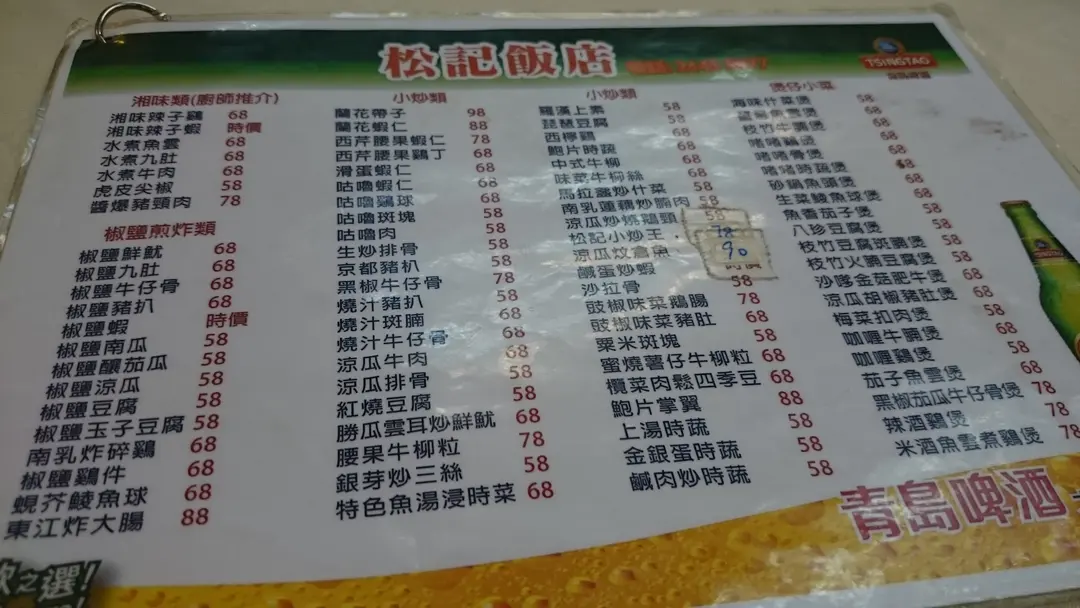 松記飯店
TSINGTAO
湘味類(廚師推介)
湘味辣子鷄 68
湘味辣子蝦 時價
水煮魚雲 68
水煮九肚 68
水煮牛肉 68
虎皮尖椒 58
醬爆豬頸肉 78
椒鹽煎炸類
椒鹽鮮魷 68
椒鹽九肚 68
椒鹽牛仔骨 68
椒鹽豬扒 68
椒鹽蝦 時價
椒鹽南瓜 58
椒鹽釀茄瓜 58
椒鹽涼瓜 58
椒鹽豆腐 58
椒鹽玉子豆腐 58
南乳炸碎鷄 68
椒鹽鷄件 68
蜆芥鯪魚球 68
東江炸大腸 88
小炒類
蘭花帶子 98
蘭花蝦仁 88
西芹腰果蝦仁 78
西芹腰果鷄丁 68
滑蛋蝦仁 68
咕嚕蝦仁 68
咕嚕鷄球 68
咕嚕斑塊 58
咕嚕肉 58
生炒排骨 58
京都豬扒 58
黑椒牛仔骨 78
燒汁豬扒 58
燒汁斑腩 68
燒汁牛仔骨 68
涼瓜牛肉 68
涼瓜排骨 58
紅燒豆腐 58
勝瓜雲耳炒鮮魷 68
腰果牛柳粒 78
銀芽炒三絲 58
特色魚湯浸時菜 68
小炒類
羅漢上素 58
琵琶豆腐 58
西檸鷄 68
鮑片時蔬 68
中式牛柳 68
味菜牛柳絲 68
馬拉盞炒什菜 58
南乳蓮藕炒腩肉 58
涼瓜炒燒鷄頸 58
松記小炒王 78
涼瓜炆倉魚 90
鹹蛋炒蝦
沙拉骨 58
豉椒味菜鷄腸 78
豉椒味菜豬肚 68
粟米斑塊 58
蜜燒薯仔牛柳粒 68
欖菜肉鬆四季豆 68
鮑片掌翼 88
上湯時蔬 58
金銀蛋時蔬 58
鹹肉炒時蔬 58
煲仔小菜
海味什菜煲 58
魚雲煲 68
枝竹牛腩煲 68
啫啫鷄煲 68
啫啫骨煲 68
啫啫時蔬煲 68
砂鍋魚頭煲 68
生菜鯪魚球煲 68
魚香茄子煲 58
八珍豆腐煲 58
枝竹豆腐斑腩煲 68
枝竹火腩豆腐煲
沙嗲金菇肥牛煲 68
涼瓜胡椒豬肚煲 68
梅菜扣肉煲 68
咖喱牛腩煲 68
咖喱鷄煲 58
茄子魚雲煲 68
黑椒茄瓜牛仔骨煲 78
辣酒鷄煲 78
米酒魚雲煮鷄煲 78
青島啤酒
之選!